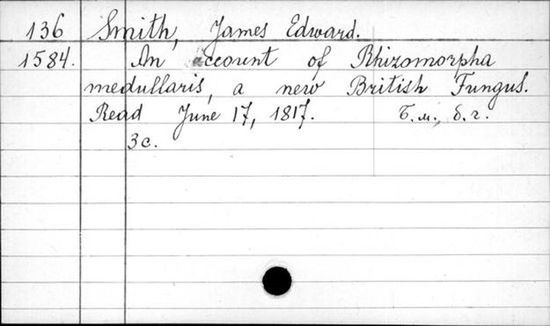 136 Smith, James Edward.
1584. An account of Rhizomorpha
medullaris, a new British Fungus.
Read June 17, 1817. Б.м., б.г.
3с.